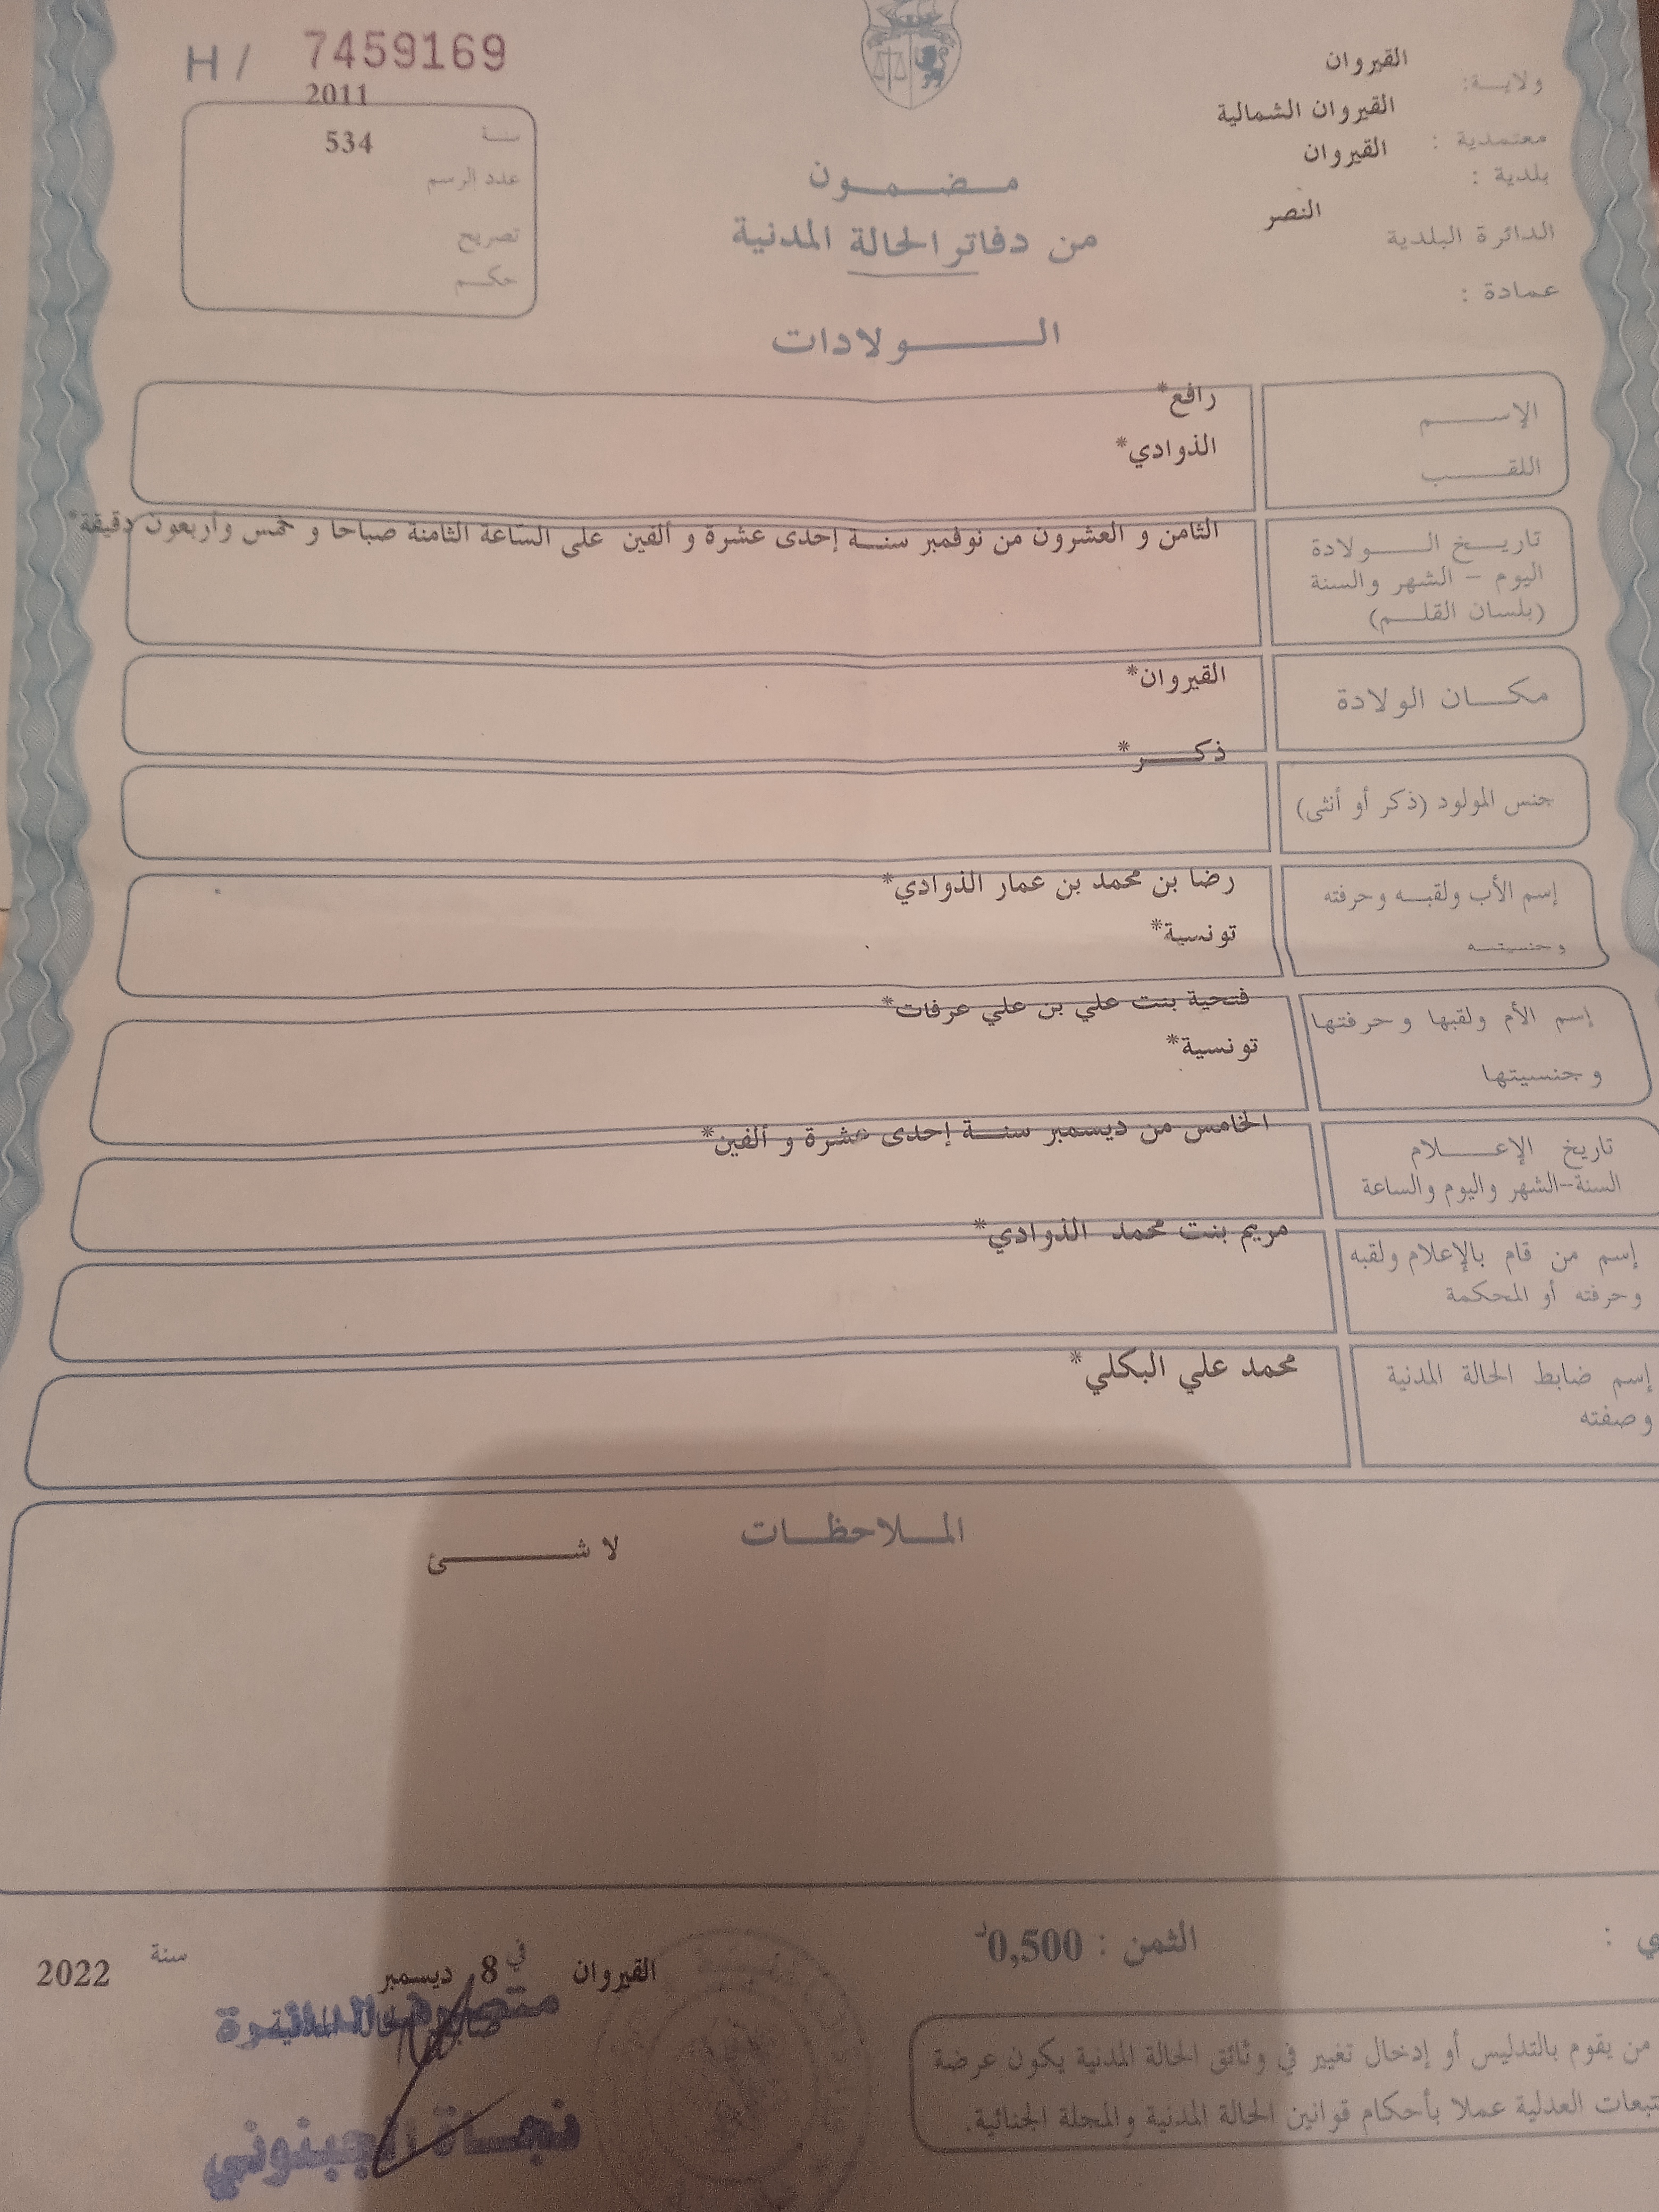 H / 7459169
ولايـــة: القيروان
معتمدية : القيروان الشمالية
بلدية : القيروان
الدائرة البلدية النصر
عمادة :
2011
سنـة 534
عدد الرسم
تصريح
حكـــم
مــضــمــون
من دفاتر الحالة المدنية
الــــولادات
الإســـــم رافع*
اللقـــب الذوادي*
تاريـــخ الـــــولادة الثامن و العشرون من نوفمبر سنـــة إحدى عشرة و ألفين على الساعة الثامنة صباحا و خمس وأربعون دقيقة*
اليوم - الشهر والسنة
(بلسان القلـــم)
مكـــان الولادة القيروان*
ذكــــر*
جنس المولود (ذكر أو أنثى)
إسم الأب ولقبـــه وحرفته رضا بن محمد بن عمار الذوادي*
وجنسيتـــه تونسية*
إسم الأم ولقبها وحرفتها فتحية بنت علي بن علي عرفات*
وجنسيتها تونسية*
الخامس من ديسمبر سنـــة إحدى عشرة و ألفين*
تاريخ الإعــــلام
السنة-الشهر واليوم والساعة
مريم بنت محمد الذوادي*
إسم من قام بالإعلام ولقبه
وحرفته أو المحكمة
إسم ضابط الحالة المدنية محمد علي البكلي*
وصفته
المــلاحظــات
لا شــــــئ
الثمن : 0,500د
القيروان في 8 ديسمبر سنة 2022
نجـــاة الجبنوني
من يقوم بالتدليس أو إدخال تغيير في وثائق الحالة المدنية يكون عرضة
للتتبعات العدلية عملا بأحكام قوانين الحالة المدنية والمجلة الجنائية.